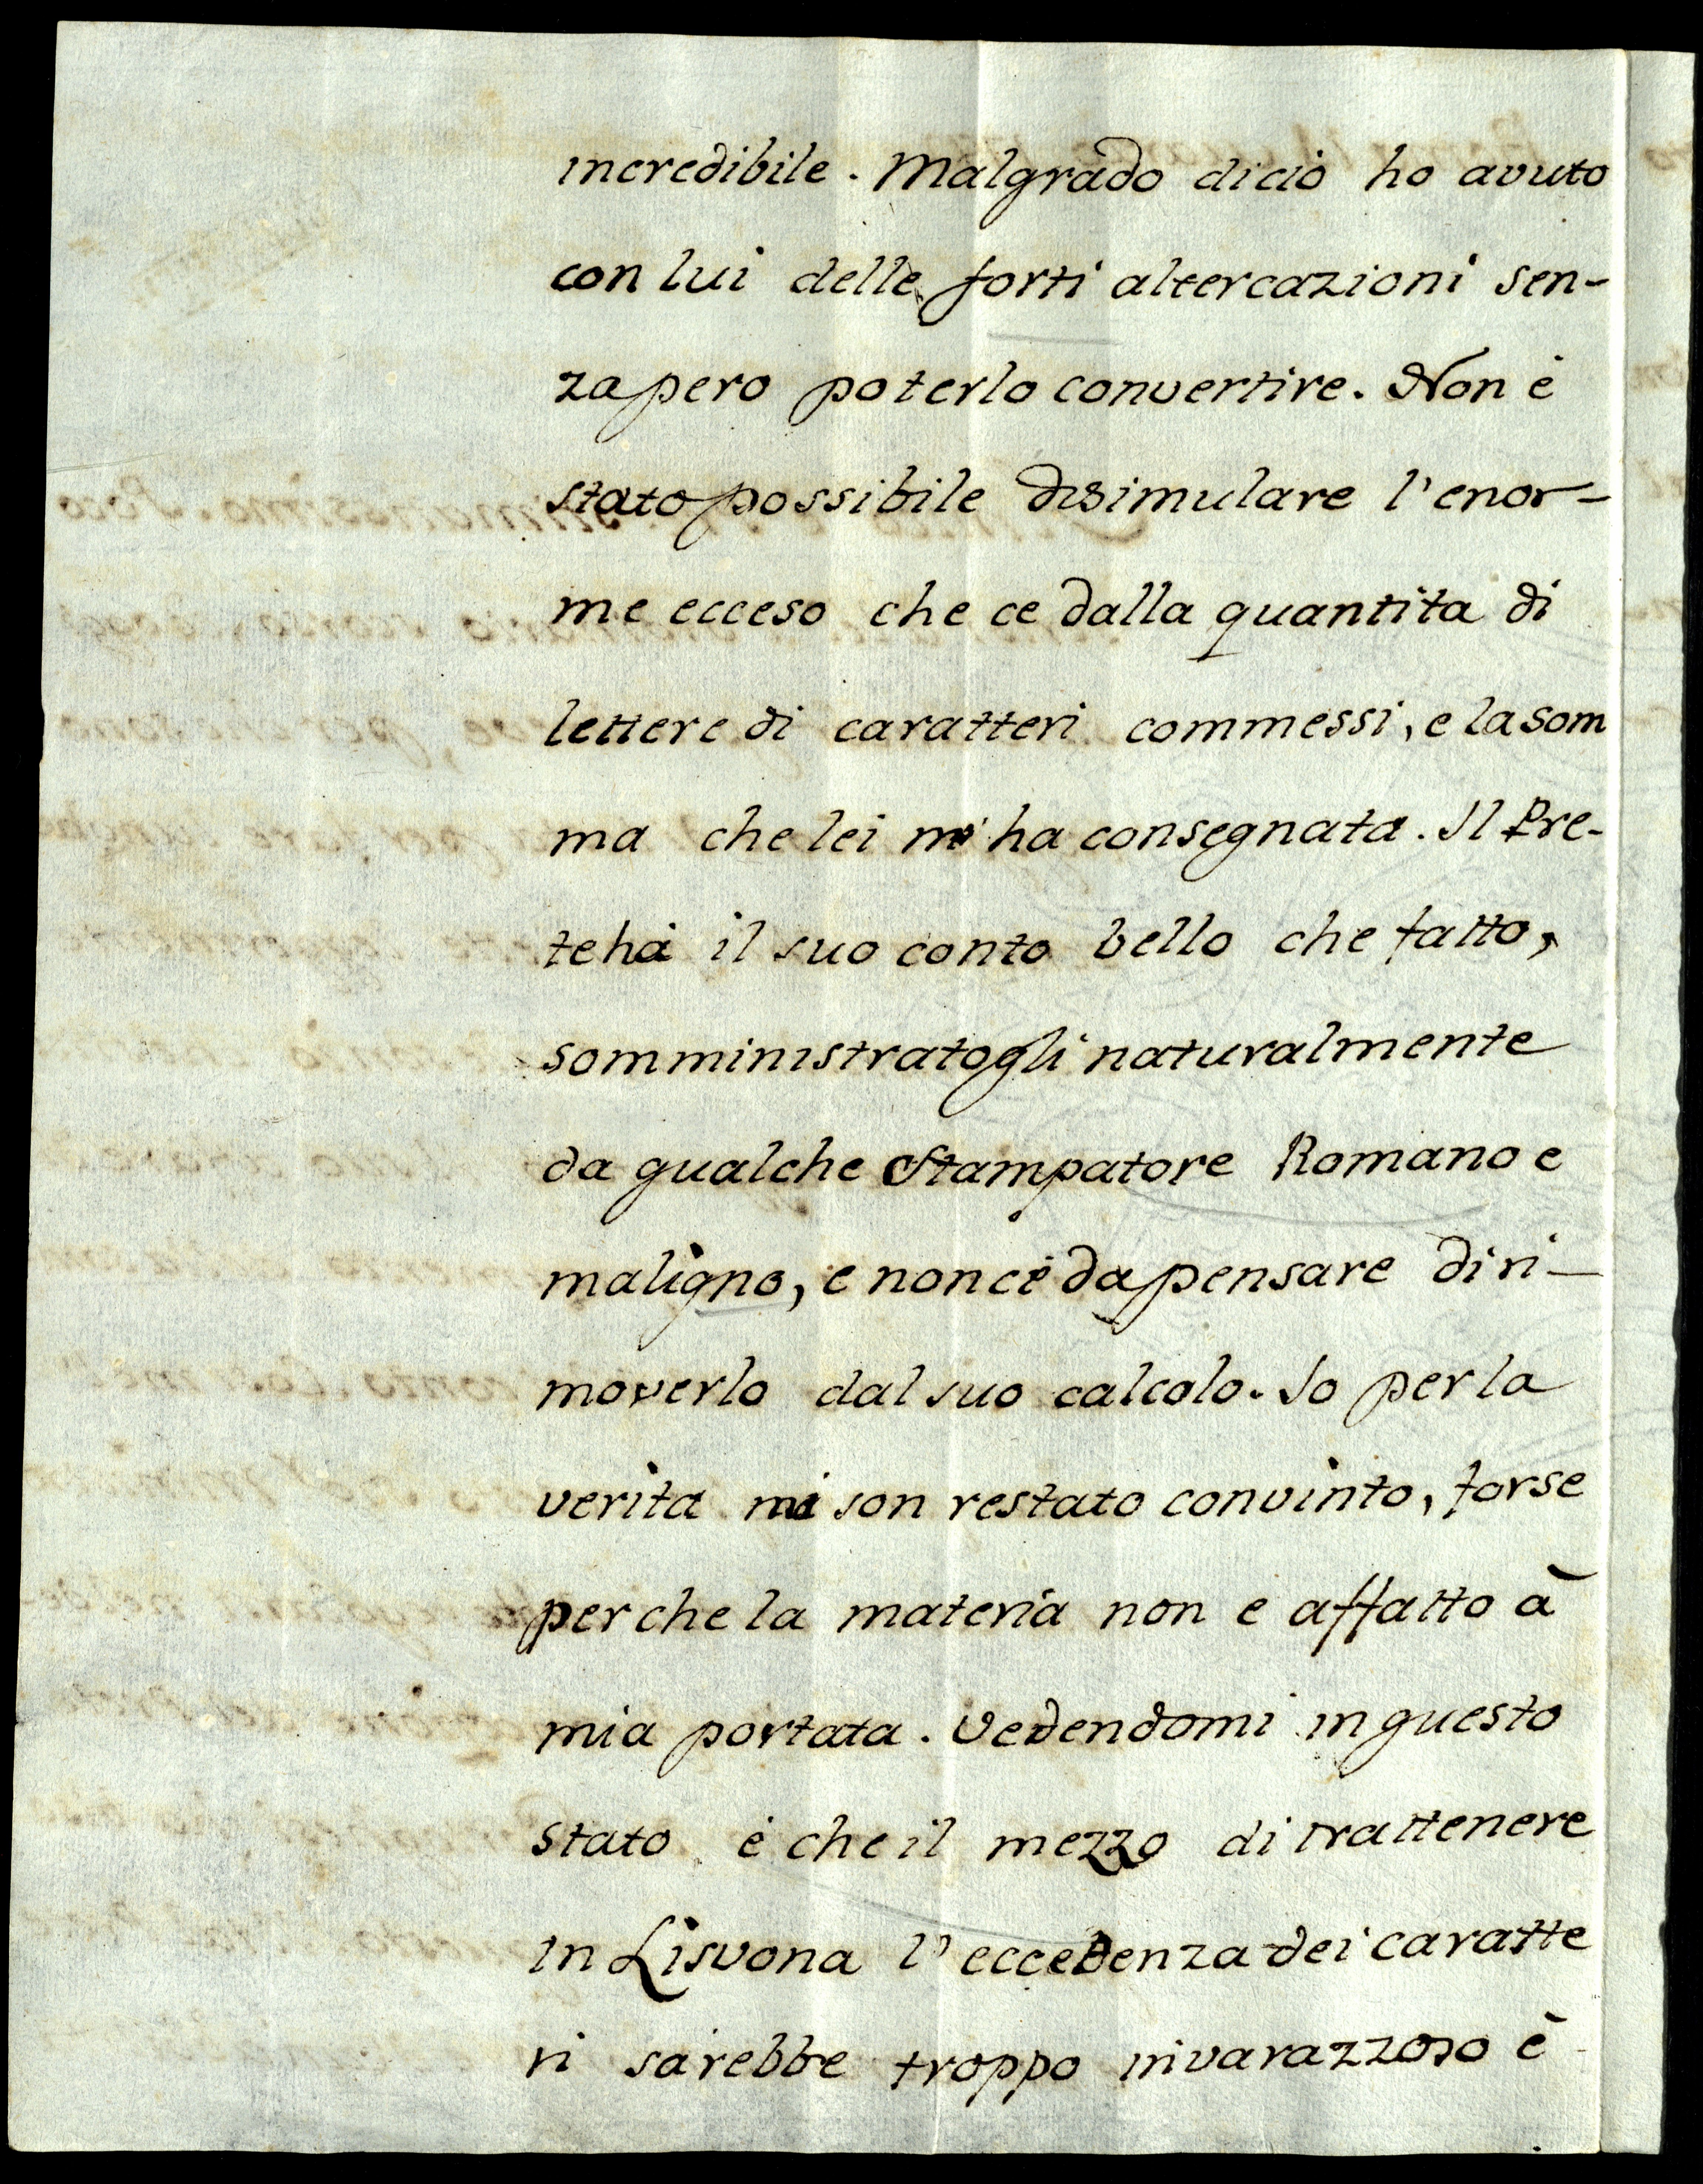 incredibile. Malgrado di ciò ho avuto
con lui delle forti altercazioni sen-
za pero poterlo convertire. Non è
stato possibile disimulare l'enor-
me ecceso che ce dalla quantita di
lettere di caratteri commessi, e la som
ma che lei m'ha consegnata. Il Pre-
te hà il suo conto bello che fatto,
somministratogli naturalmente
da qualche Stampatore Romano e
maligno, e non cè da pensare di ri-
moverlo dal suo calcolo. Io per la
verità mi son restato convinto, forse
perche la materia non e affatto à
mia portata. Vedendomi in questo
stato è che il mezzo di trattenere
in Lisvona l'eccedenza dei caratte
ri sarebbe troppo invarazzoso è